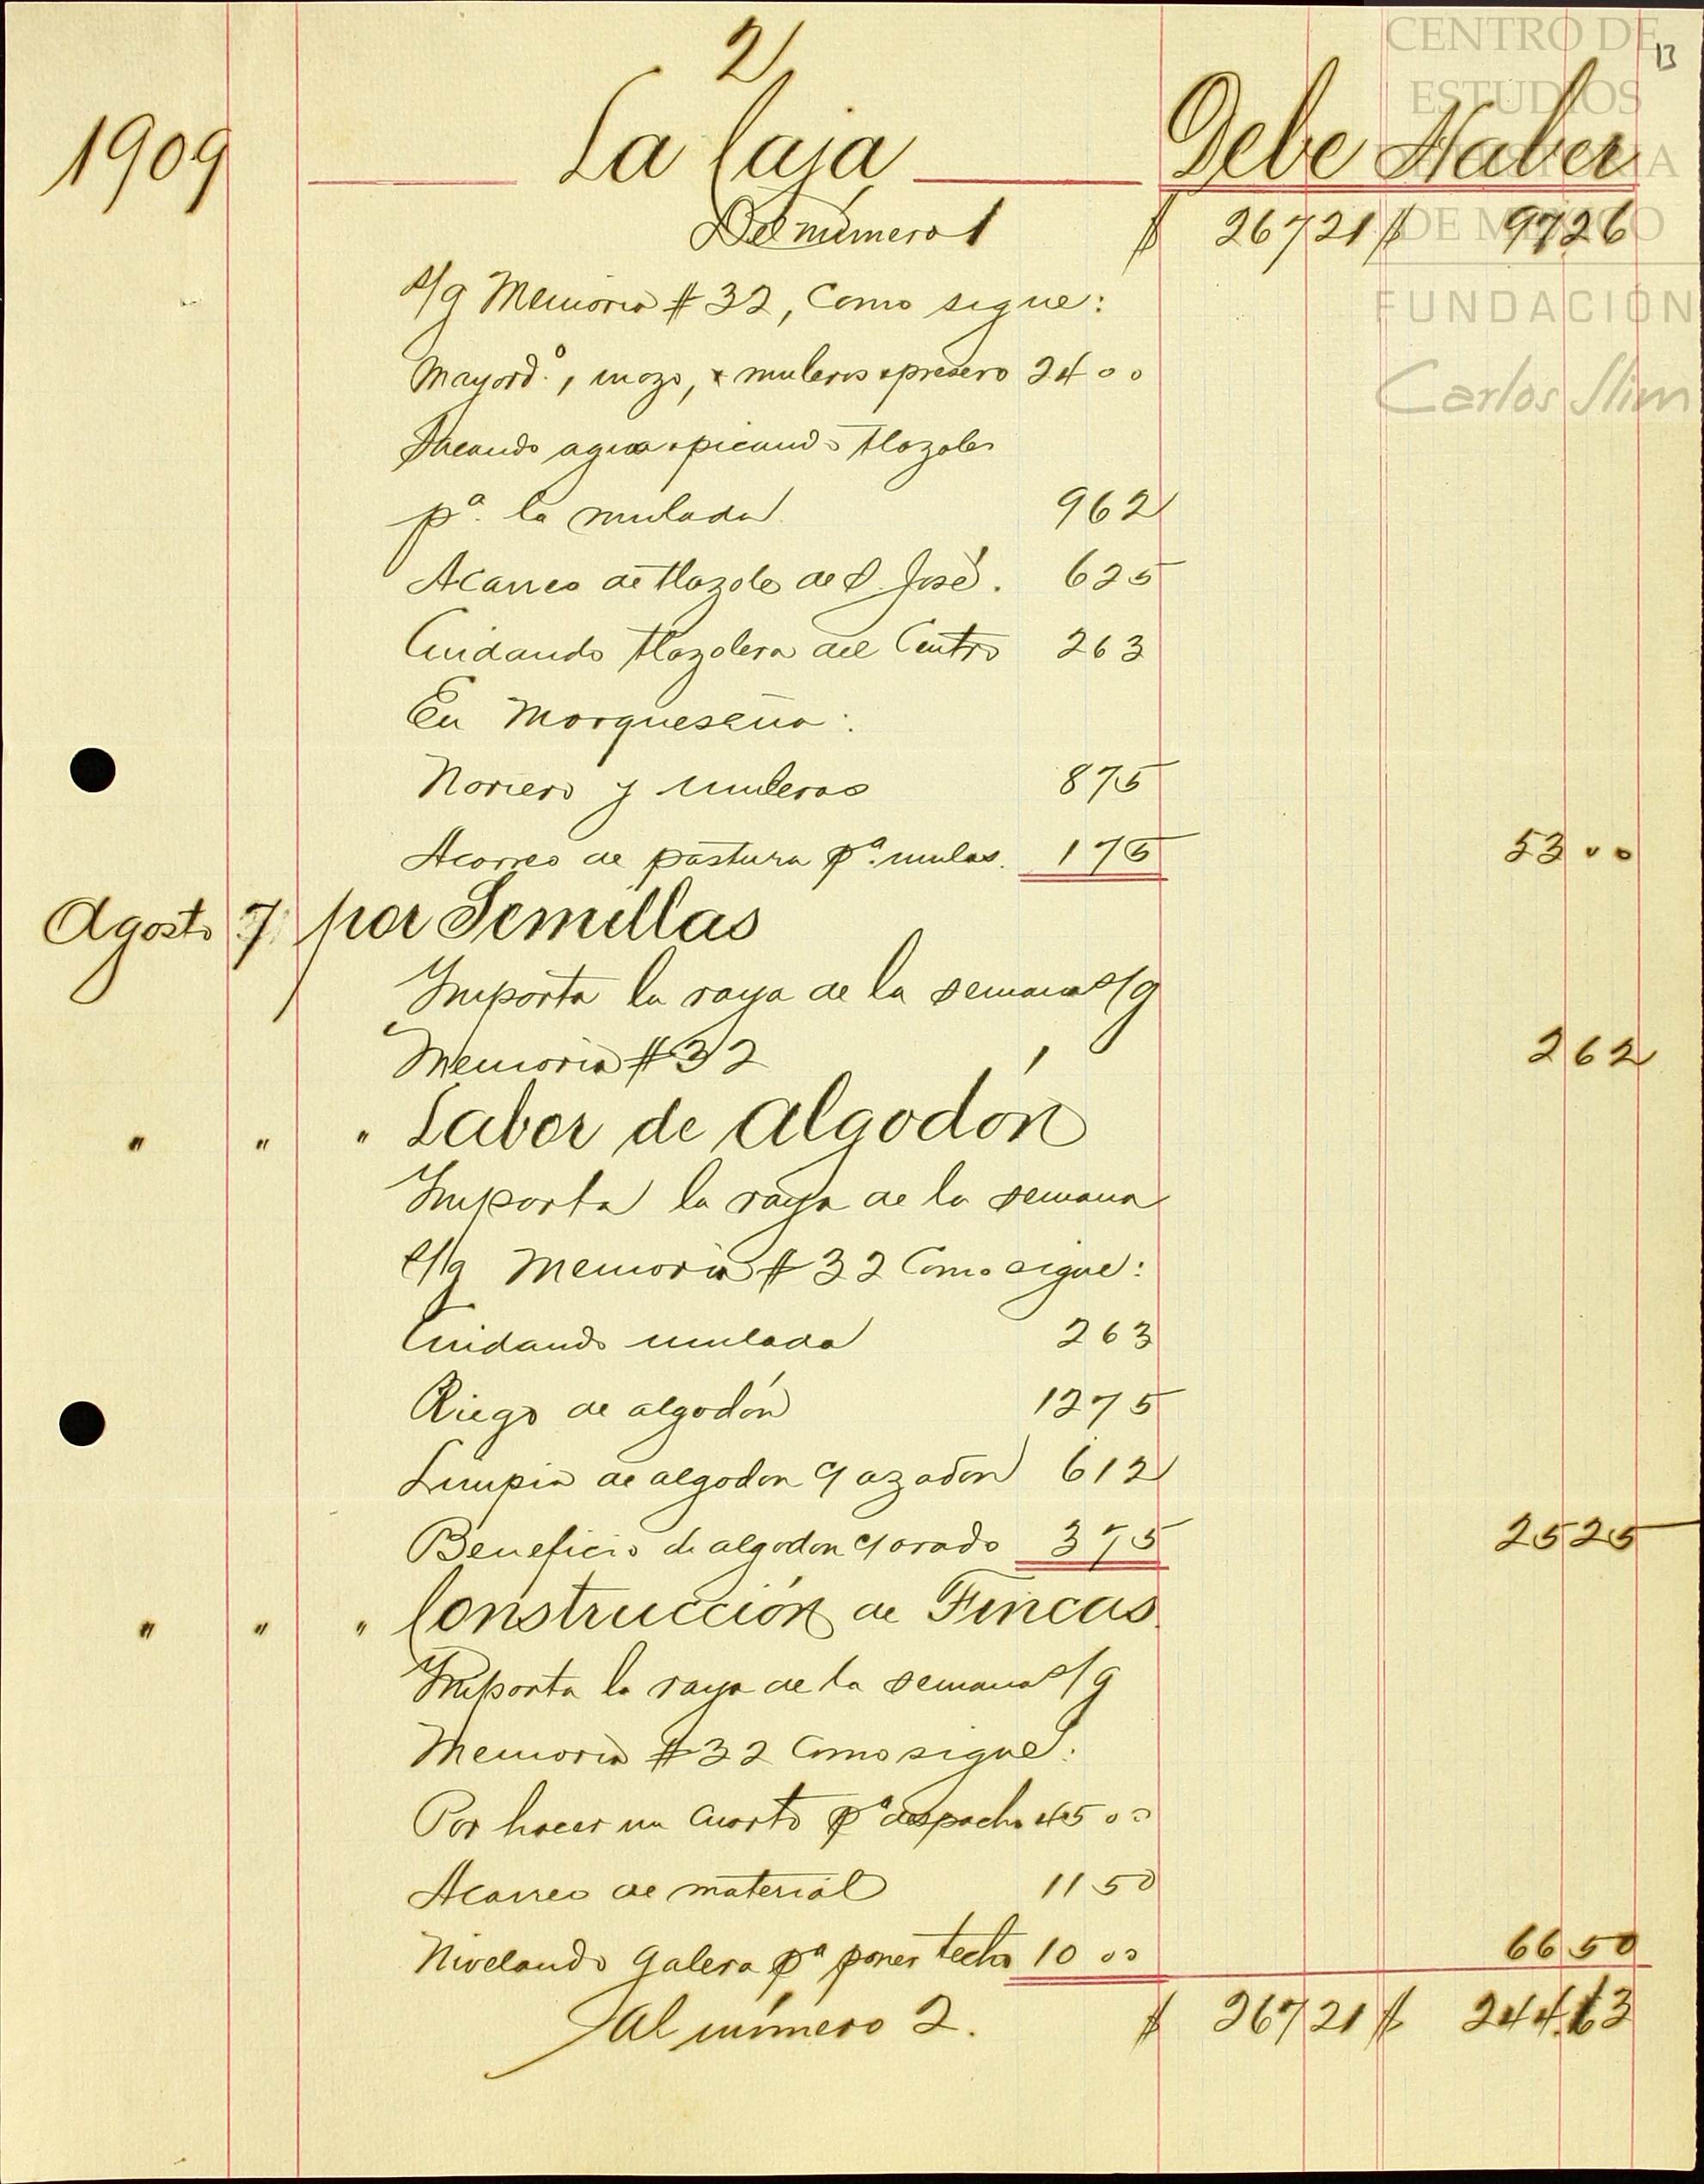 2
13
1909 La Caja Debe Haber
Del número 1 $ 267 21 $ 97 26
s/g Memoria # 32, Como sigue:
Mayord.º, mozo, muleros presero 24 00
Sacando agua picando tlazole
pª. la mulada 9 62
Acarreo de tlazole de S. José. 6 25
Cuidando tlazolera del Centro 2 63
En Morqueseña:
Noriero y muleros 8 75
Acarreo de pastura pª. mulas. 1 75 53 00
Agosto 7 por Semillas
Importa la raya de la semana s/g
Memoria # 32 2 62
" " " Labor de algodón
Importa la raya de la semana
s/g Memoria # 32 Como sigue:
Cuidando mulada 2 63
Riego de algodón 12 75
Limpia de algodon c/ azadon 6 12
Beneficio de algodon c/ arado 3 75 25 25
" " " Construcción de Fincas.
Importa la raya de la semana s/g
Memoria # 32 Como sigue:
Por hacer un cuarto pª despacho 45 00
Acarreo de material 11 50
Nivelando galera pª poner techo 10 00 66 50
Al número 2. $ 267 21 $ 244.63
CENTRO DE
ESTUDIOS
DE HISTORIA
DE MEXICO
FUNDACIÓN
Carlos Slim